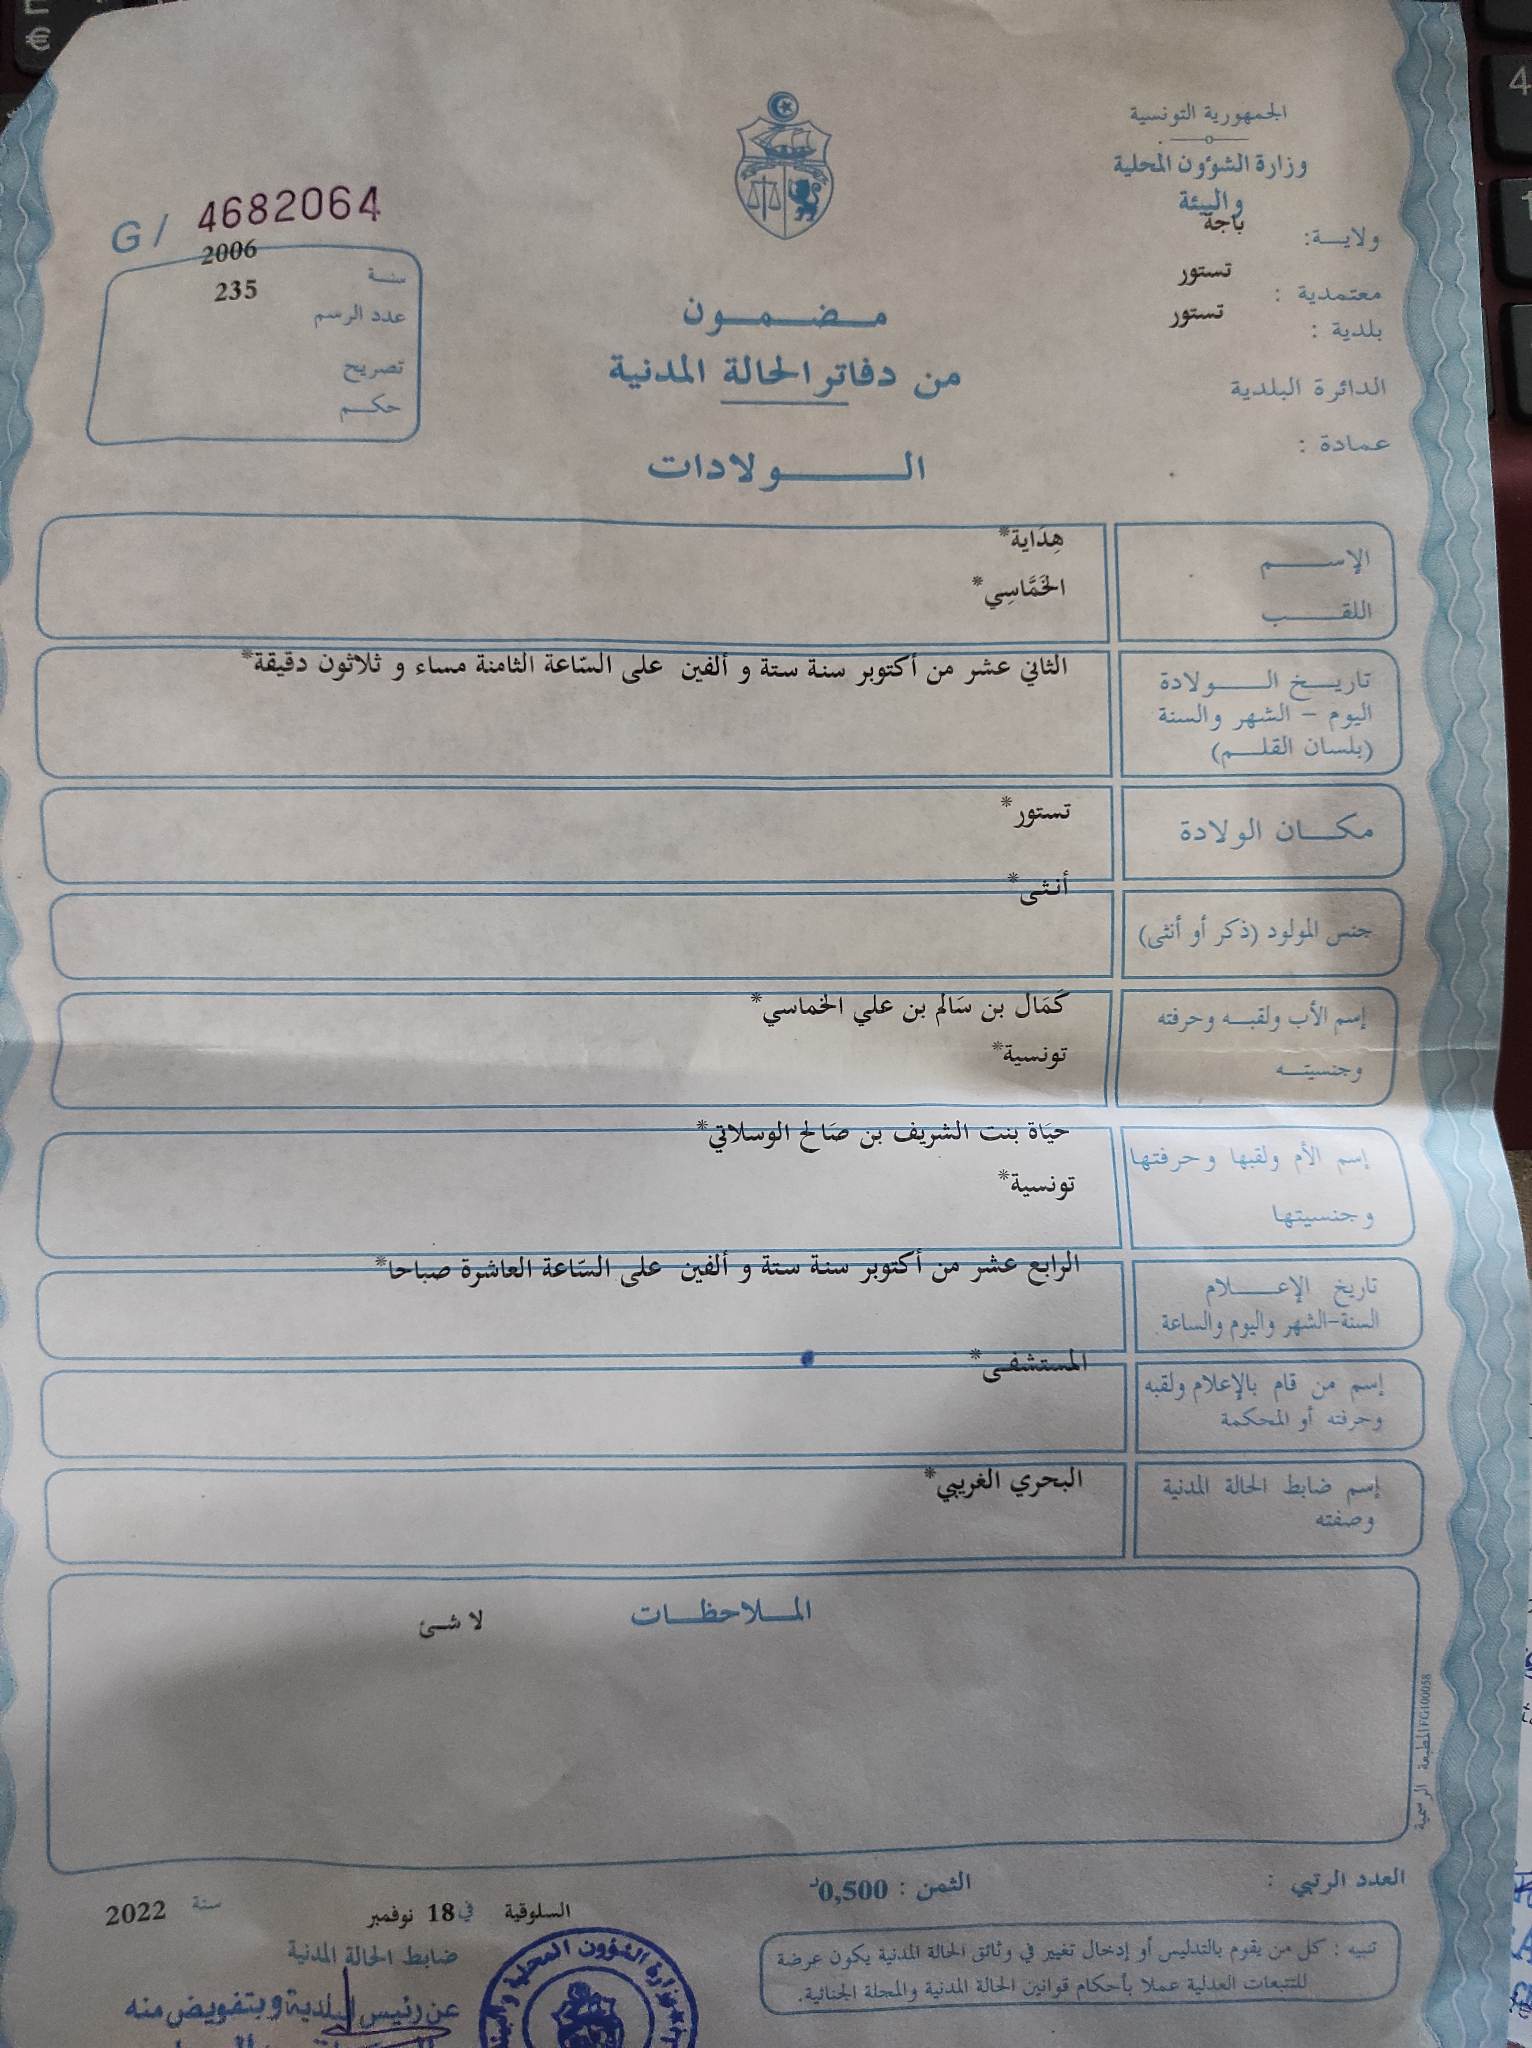 الجمهورية التونسية
وزارة الشؤون المحلية
والبيئة
ولاية: باجة
معتمدية : تستور
بلدية : تستور
الدائرة البلدية
عمادة :
مضمون
من دفاتر الحالة المدنية
الولادات
G/ 4682064
سنة 2006
عدد الرسم 235
تصريح
حكم
الإسم هِدَاية*
اللقب الخَمَّاسِي*
تاريخ الولادة الثاني عشر من أكتوبر سنة ستة و ألفين على السّاعة الثامنة مساء و ثلاثون دقيقة*
اليوم - الشهر والسنة
(بلسان القلم)
مكان الولادة تستور*
جنس المولود (ذكر أو أنثى) أنثى*
إسم الأب ولقبه وحرفته كَمَال بن سَالم بن علي الخماسي*
وجنسيته تونسية*
إسم الأم ولقبها وحرفتها حيَاة بنت الشريف بن صَالح الوسلاتي*
وجنسيتها تونسية*
تاريخ الإعلام الرابع عشر من أكتوبر سنة ستة و ألفين على السّاعة العاشرة صباحا*
السنة-الشهر واليوم والساعة.
إسم من قام بالإعلام ولقبه المستشفى*
وحرفته أو المحكمة
إسم ضابط الحالة المدنية البحري الغريبي*
وصفته
الملاحظات لا شئ
المطبعة الرسمية FG100058
العدد الرتبي :
الثمن : 0,500د
السلوقية في 18 نوفمبر سنة 2022
تنبيه : كل من يقوم بالتدليس أو إدخال تغيير في وثائق الحالة المدنية يكون عرضة
للتتبعات العدلية عملا بأحكام قوانين الحالة المدنية والمجلة الجنائية.
ضابط الحالة المدنية
عن رئيس البلدية وبتفويض منه
وزارة الشؤون المحلية والبيئة